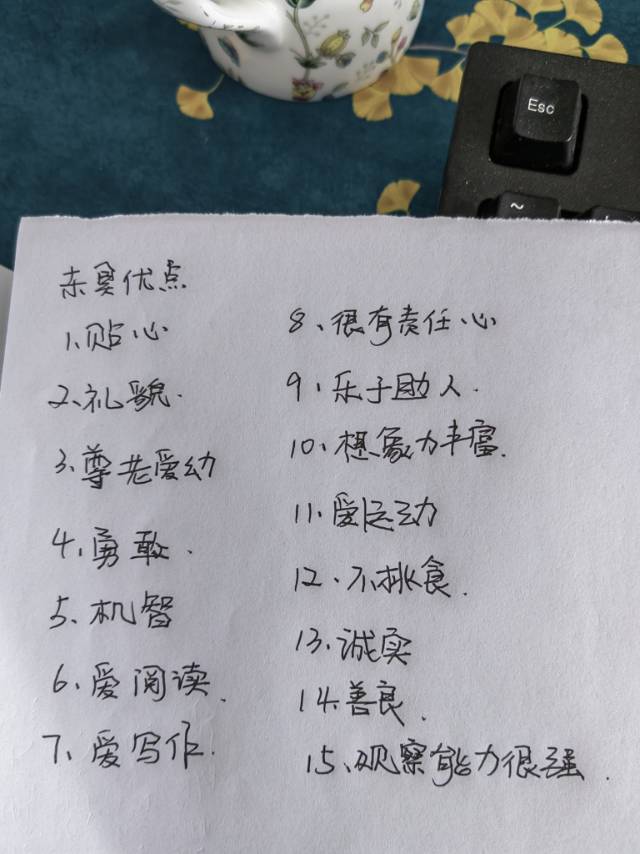 Esc
~
优点
1、贴心
2、礼貌.
3、尊老爱幼
4、勇敢.
5、机智
6、爱阅读.
7、爱写作.
8、很有责任心
9、乐于助人.
10、想象力丰富.
11、爱运动
12、不挑食.
13、诚实
14、善良.
15、观察能力很强.